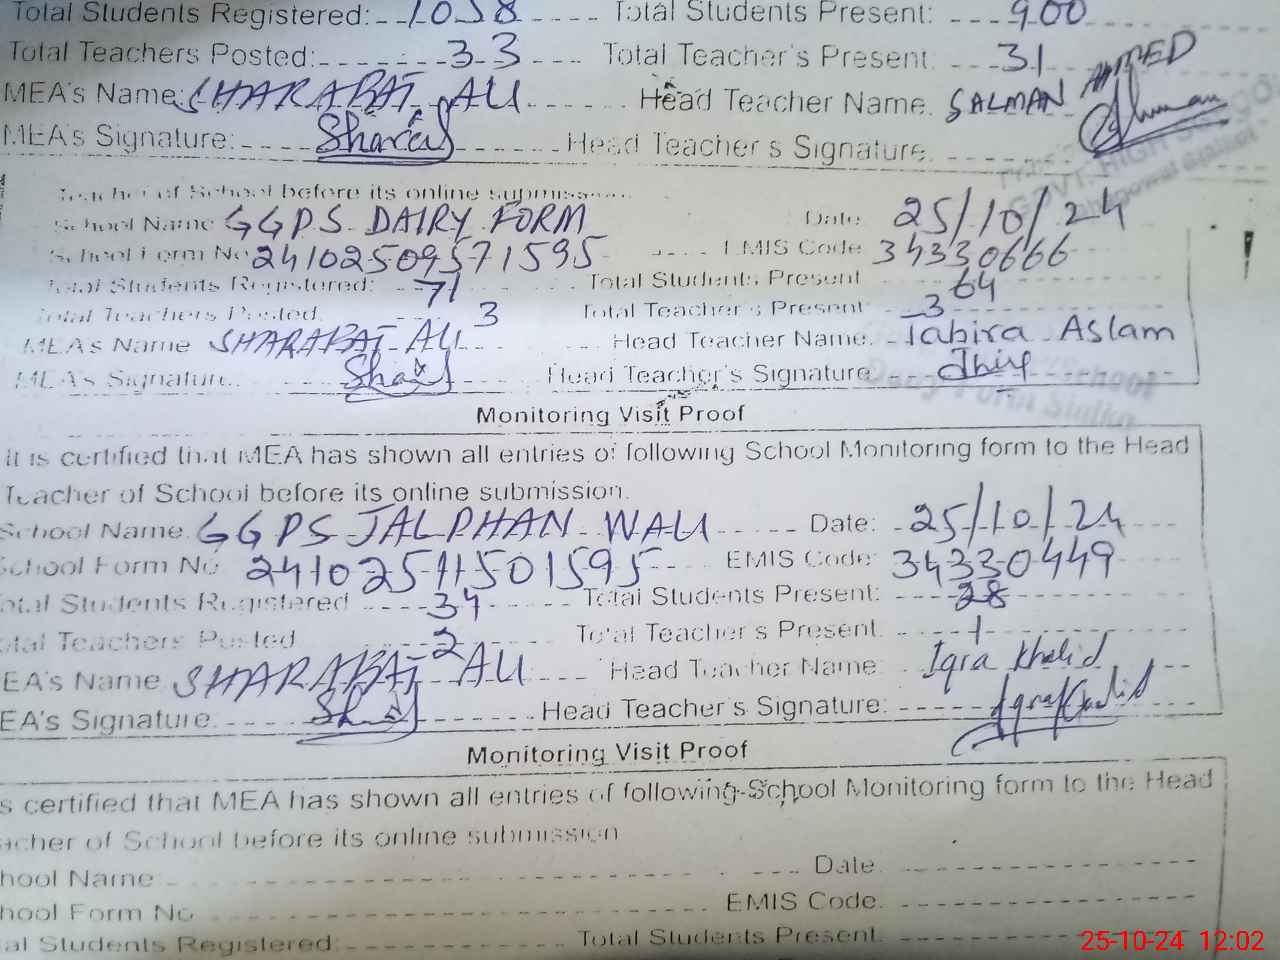 Total Students Registered: 1058 Total Students Present: 900
Total Teachers Posted: 33 Total Teacher's Present: 31
MEA's Name: SHARAFAT ALI Head Teacher Name. SALMAN AHMED
MEA's Signature: Head Teacher's Signature.
GOVT. HIGH
Teacher of School before its online submission.
School Name GGPS DAIRY FORM Date 25/10/24
School Form No 24102509571595 EMIS Code 34330666
Total Students Registered: 71 Total Students Present 64
Total Teachers Posted. 3 Total Teacher's Present: 3
MEA's Name SHARAFAT ALI Head Teacher Name: Tahira Aslam
MEA's Signature: Head Teacher's Signature
School
Dairy Form Sialko
Monitoring Visit Proof
It is certified that MEA has shown all entries of following School Monitoring form to the Head
Teacher of School before its online submission.
School Name. GGPS JALPHAN WALI Date: 25/10/24
School Form No 24102511501595 EMIS Code: 34330449
otal Students Registered 34 Total Students Present: 28
otal Teachers Posted 2 Total Teacher's Present. 1
EA's Name SHARAFAT ALI Head Teacher Name: Iqra Khalid
EA's Signature: Head Teacher's Signature: Iqra Khalid
Monitoring Visit Proof
s certified that MEA has shown all entries of following School Monitoring form to the Head
acher of School before its online submission
hool Name Date
hool Form No EMIS Code.
al Students Registered: Total Students Present.
25-10-24 12:02